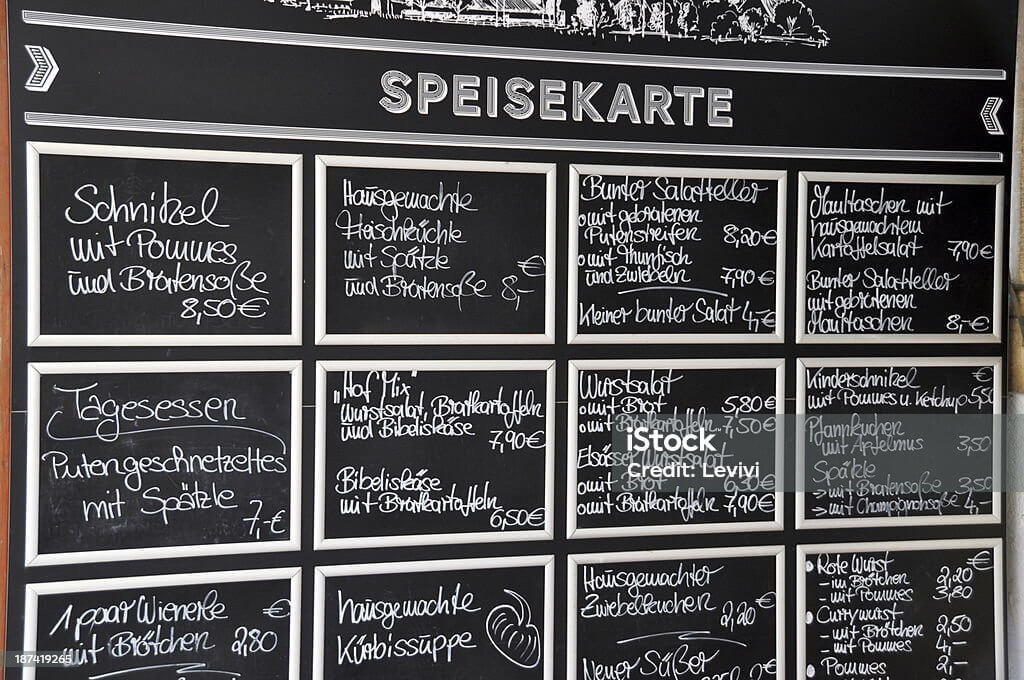 SPEISEKARTE
Schnitzel
mit Pommes
und Bratensoße
8,50€
Hausgemachte
Fleischküchle
mit Spätzle €
und Bratensoße 8,-
Bunter Salatteller
o mit gebratenen
Putenstreifen 8,20€
o mit Thunfisch
und Zwiebeln 7,90€
Kleiner bunter Salat 4,-€
Maultaschen mit
hausgemachtem
Kartoffelsalat 7,90€
Bunter Salatteller
mit gebratenen
Maultaschen 8,-€
Tagesessen
Putengeschnetzeltes
mit Spätzle
7,-€
"Hof Mix"
Wurstsalat, Bratkartoffeln
und Bibeliskäse
7,90€
Bibeliskäse
mit Bratkartoffeln
6,50€
Wurstsalat
o mit Brot 5,80€
o mit Bratkartoffeln 7,50€
Elsässer Wurstsalat
o mit Brot 6,30€
o mit Bratkartoffeln 7,90€
Kinderschnitzel €
mit Pommes u. Ketchup 5,50
Pfannkuchen
mit Apfelmus 3,50
Spätzle
→ mit Bratensoße 3,50
→ mit Champignonsoße 4,-
1 paar Wienerle €
mit Brötchen 2,80
hausgemachte
Kürbissuppe
Hausgemachter
Zwiebelkuchen €
2,20
Neuer Süßer
€
Rote Wurst €
- im Brötchen 2,20
- mit Pommes 3,80
Currywurst
- mit Brötchen 2,50
- mit Pommes 4,-
Pommes 2,-
iStock
Credit: Levivi
187419265